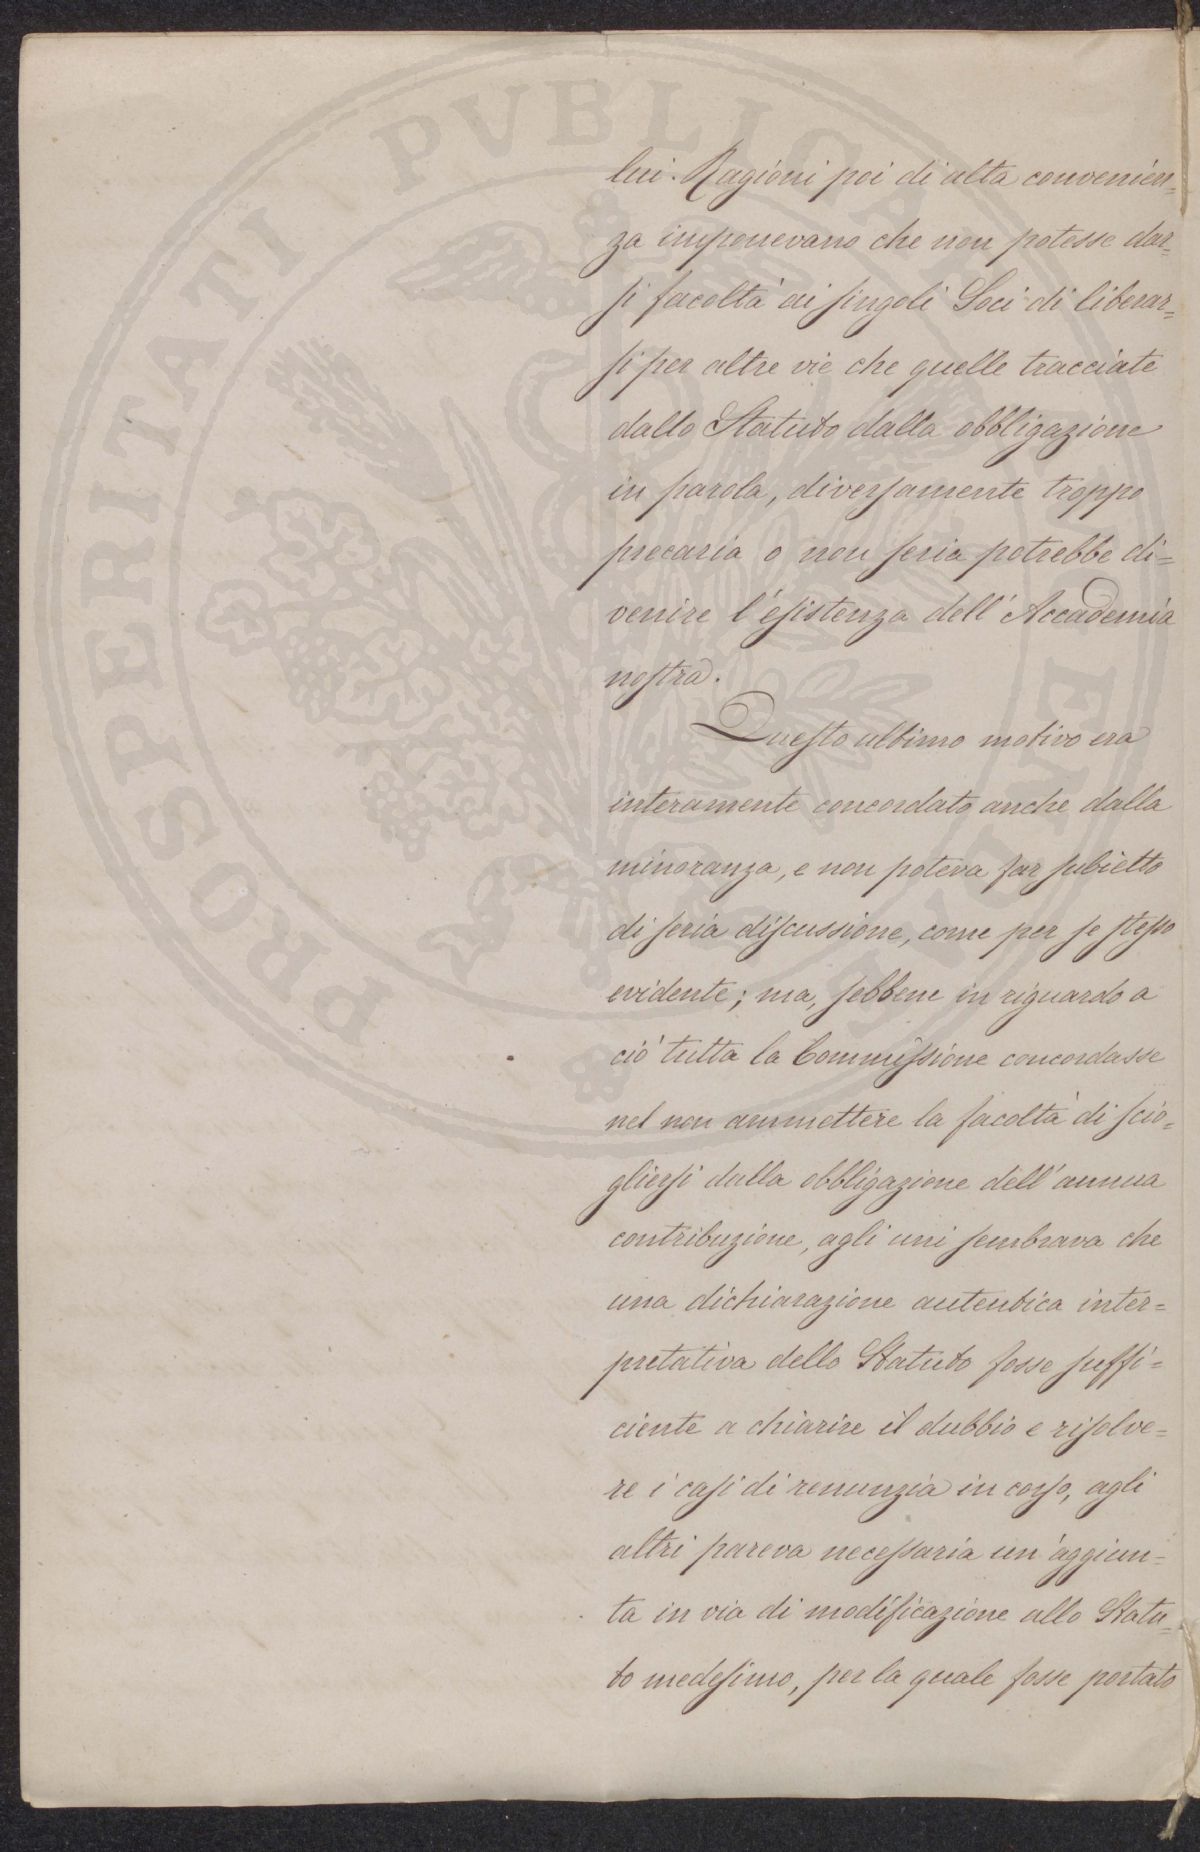 lui. Ragioni poi di alta convenien=
za imponevano che non potesse dar=
si facoltà ai singoli Soci di liberar=
si per altre vie che quelle tracciate
dallo Statuto dalla obbligazione
in parola, diversamente troppo
precaria o non seria potrebbe di=
venire l'esistenza dell'Accademia
nostra.
Questo ultimo motivo era
interamente concordato anche dalla
minoranza, e non poteva far subietto
di seria discussione, come per se stesso
evidente; ma, sebbene in riguardo a
ciò tutta la Commissione concordasse
nel non ammettere la facoltà di scio=
gliersi dalla obbligazione dell'annua
contribuzione, agli uni sembrava che
una dichiarazione autentica inter=
pretativa dello Statuto fosse suffi=
ciente a chiarire il dubbio e risolve=
re i casi di renunzia in corso, agli
altri pareva necessaria un'aggiun=
ta in via di modificazione allo Statu=
to medesimo, per la quale fosse portato
PROSPERITATI PVBLICAE